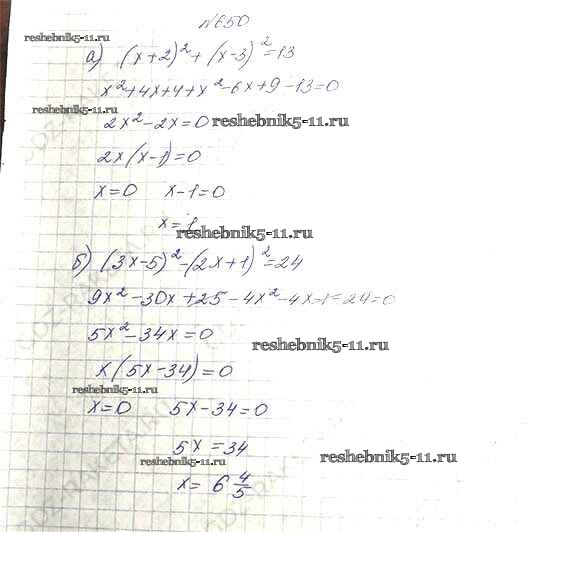 №650
reshebnik5-11.ru
а) (x+2)²+(x-3)²=13
x²+4x+4+x²-6x+9-13=0
reshebnik5-11.ru
2x²-2x=0 reshebnik5-11.ru
2x(x-1)=0
x=0 x-1=0
x=1
reshebnik5-11.ru
б) (3x-5)²-(2x+1)²=24
9x²-30x+25-4x²-4x-1-24=0
5x²-34x=0
reshebnik5-11.ru
x(5x-34)=0
reshebnik5-11.ru
x=0 5x-34=0
5x=34
reshebnik5-11.ru reshebnik5-11.ru
x=6 4/5